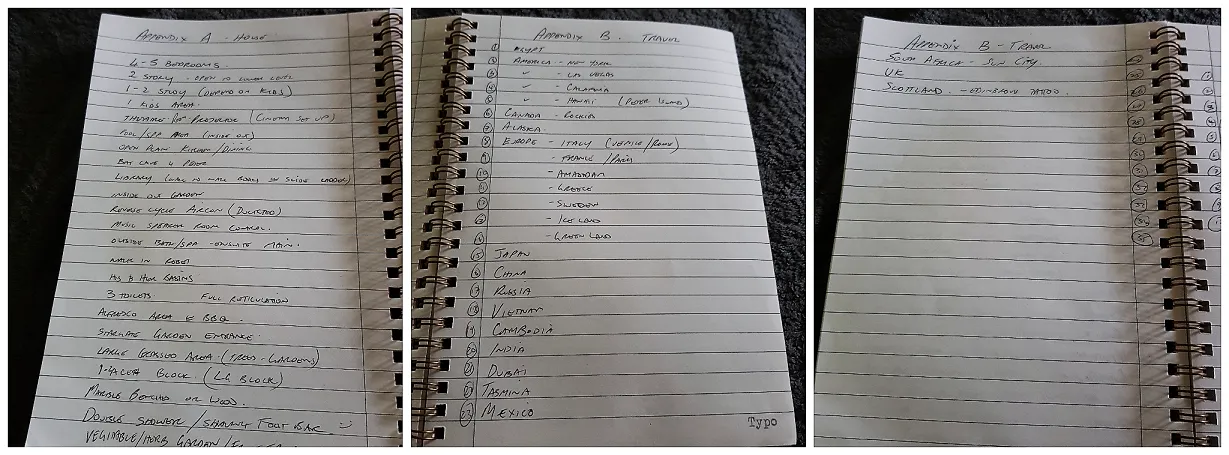 APPENDIX A - HOUSE
4-5 BEDROOMS.
2 STORY - OPEN TO LOWER LEVEL
1-2 STUDY (DEPEND ON KIDS)
1 KIDS AREA.
THEATRE PROJECTOR (CINEMA SET UP)
POOL/SPA AREA (INSIDE OUT)
OPEN PLAN KITCHEN/DINING
BAT CAVE 4 PETER
LIBRARY (WALL TO WALL BOOKS ON SLIDE LADDER)
INSIDE OUT GARDEN
REVERSE CYCLE AIRCON (DUCTED)
MUSIC SPEAKER ROOM CONTROL.
OUTSIDE BATH/SPA - ENSUITE MAIN.
WALK IN ROBES
HIS & HER BASINS
3 TOILETS FULL RETICULATION
ALFRESCO AREA & BBQ.
STARGATE GARDEN ENTRANCE.
LARGE GRASSED AREA. (TREES-GARDENS)
BLOCK (LG BLOCK)
MARBLE OR WOOD.
DOUBLE SHOWER / FOOT BAR
VEGITABLE/HERB GARDEN /
APPENDIX B - TRAVEL
1 EGYPT
2 AMERICA - NEW YORK
3 " - LAS VEGAS
4 " -
5 " - HAWAII (PETER ISLAND)
6 CANADA - ROCKIES
7 ALASKA.
8 EUROPE - ITALY (VENICE/ROME)
9 - FRANCE / PARIS
10 - AMSTERDAM
11 - GREECE
12 - SWEDEN
13 - ICE LAND
14 - GREEN LAND
15 JAPAN
16 CHINA
17 RUSSIA
18 VIETNAM
19 CAMBODIA
20 INDIA
21 DUBAI
22 TASMINA
23 MEXICO
Typo
APPENDIX B - TRAVEL
SOUTH AFRICA - SUN CITY.
UK
SCOTTLAND - EDINBROUGH TATTOO.